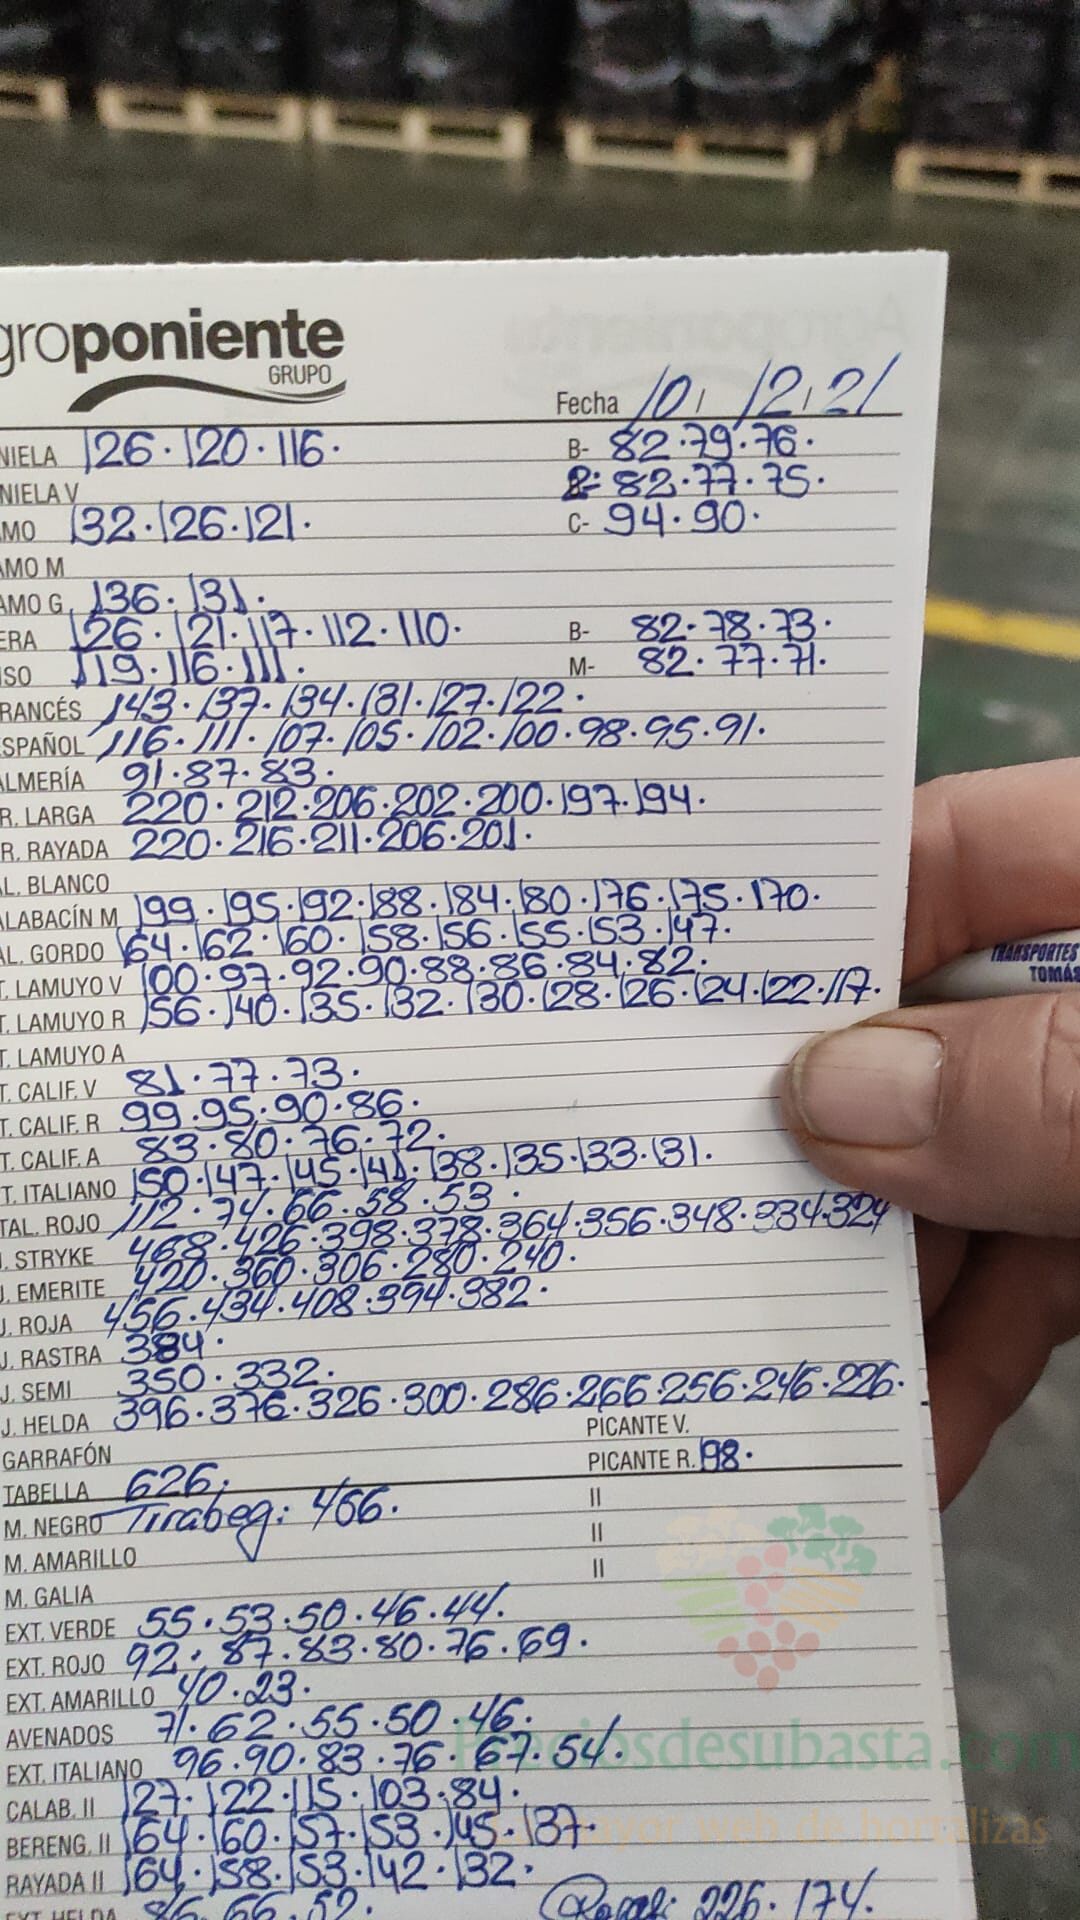 groponiente
GRUPO
Fecha 10, 12, 21
NIELA 126.120.116. B- 82.79.76.
NIELA V 82.77.75.
MO 132.126.121. C- 94.90.
AMO M
AMO G 136.131.
ERA 126.121.117.112.110. B- 82.78.73.
SO 119.116.111. M- 82.77.71.
RANCÉS 143.137.134.131.127.122.
SPAÑOL 116.111.107.105.102.100.98.95.91.
ALMERÍA 91.87.83.
R. LARGA 220.212.206.202.200.197.194.
R. RAYADA 220.216.211.206.201.
L. BLANCO
ALABACÍN M 199.195.192.188.184.180.176.175.170.
AL. GORDO 164.162.160.158.156.155.153.147.
T. LAMUYO V 100.97.92.90.88.86.84.82.
T. LAMUYO R 156.140.135.132.130.128.126.124.122.117.
T. LAMUYO A
T. CALIF. V 81.77.73.
T. CALIF. R 99.95.90.86.
T. CALIF. A 83.80.76.72.
T. ITALIANO 150.147.145.141.138.135.133.131.
TAL. ROJO 112.74.66.58.53.
J. STRYKE 468.426.398.378.364.356.348.334.324
J. EMERITE 420.360.306.280.240.
J. ROJA 456.434.408.394.382.
J. RASTRA 384.
J. SEMI 350.332.
J. HELDA 396.376.326.300.286.266.256.246.226.
GARRAFÓN PICANTE V.
TABELLA 626. PICANTE R. 198.
M. NEGRO Tirabeg: 466. II
M. AMARILLO II
M. GALIA II
EXT. VERDE 55.53.50.46.44.
EXT. ROJO 92.87.83.80.76.69.
EXT. AMARILLO 40.23.
AVENADOS 71.62.55.50.46.
EXT. ITALIANO 96.90.83.76.67.54.
CALAB. II 127.122.115.103.84.
BERENG. II 164.160.157.153.145.137.
RAYADA II 164.158.153.142.132.
EXT. HELDA 86.66.52. 226.174.
TRANSPORTES
TOMÁS
Preciosdesubasta.com
mayor web de hortalizas